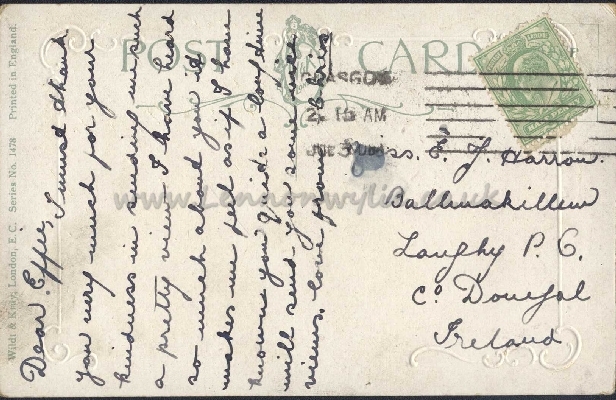 POST CARD
Wildt & Kray, London, E.C. Series No. 1478 Printed in England.
Dear Effie, I must thank
you very much for your
kindness in sending me such
a pretty view I have heard
so much about you it
makes me feel as if I have
known you quite a long time
will send you some nice
views. love from
GLASGOW
2. 15 AM
Miss. E. J. Harron.
Ballinakillew
Laughy P. O.
Co Donegal
Ireland